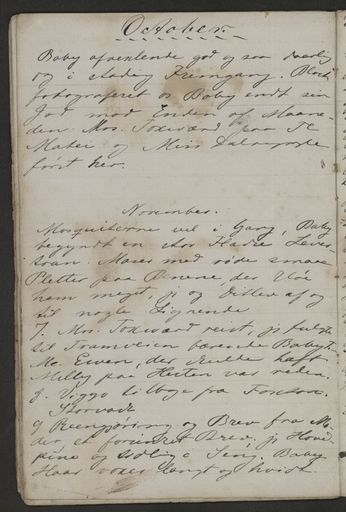 October.
Baby afvexlende god og saa daarlig
og i stadig Fremgang. Bloch
fotograferet os Baby endt sin
Jod mod Enden af Maane-
den. Mrs. Toxward paa Te
Matai og Miss Dalrymple
først her.
November.
Mosquitterne vel i Gang, Baby
begyndt en stor Fladre Lever
svan. Maser med røde smaa
Pletter paa Benene, der kløe
hem meget, jeg og Ditlev af og
til nogle Lignende
7. Mrs. Toxward reist, jeg fulgte
til Tramveien bærende Baby,
Mc. Ewen, der skulde haft
Milly paa Hesten var reden.
8. Viggo tilbage fra Foxton.
Storvask
9 Reengjøring og Brev fra Mo-
der, et forvirret Brev, jeg Hoved-
pine og tidlig i Seng. Babys
Haar voxer langt og hvidt.